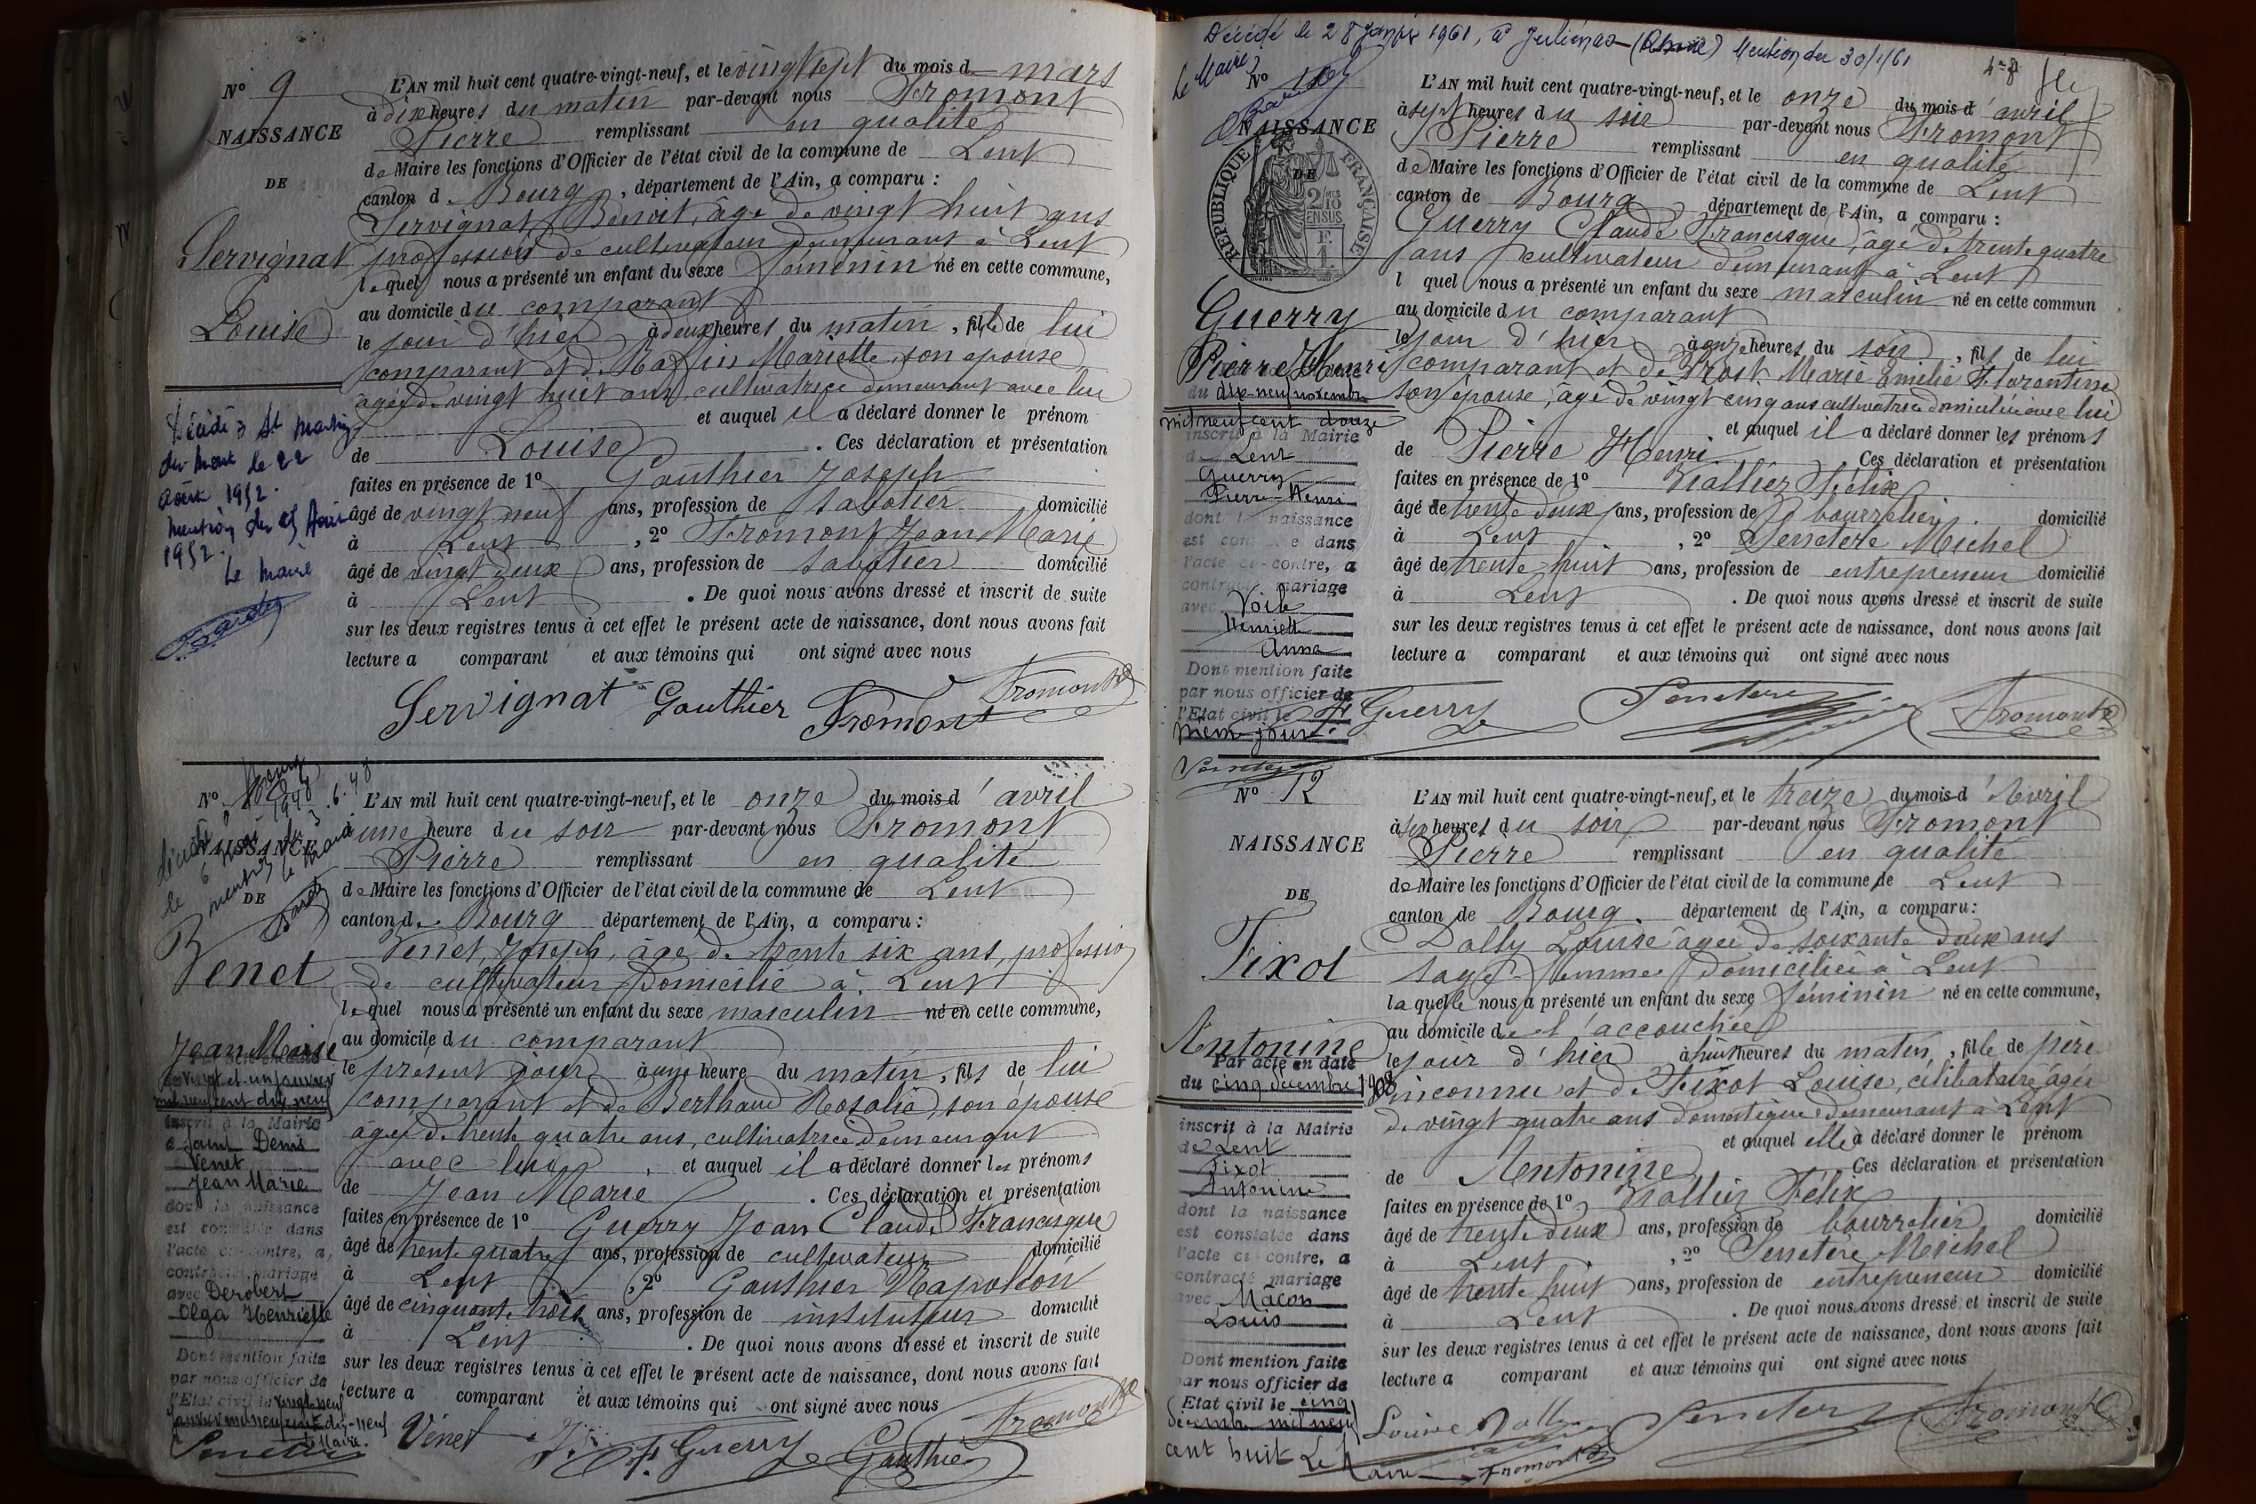 N° 9
NAISSANCE
DE
Servignat
Louise
Décédée à St Martin
du Mont le 22
Août 1952.
Mention du 25 Août
1952.
Le Maire
L'AN mil huit cent quatre-vingt-neuf, et le vingt sept du mois d mars
à dix heures du matin par-devant nous Fromont
Pierre remplissant en qualité
de Maire les fonctions d'Officier de l'état civil de la commune de Lent
canton d. Bourg, département de l'Ain, a comparu :
Servignat Benoit, âgé de vingt huit ans
profession de cultivateur demeurant à Lent
lequel nous a présenté un enfant du sexe féminin né en cette commune,
au domicile du comparant
le jour d'hier à deux heures du matin, fille de lui
comparant et de Raffin Mariette, son épouse
âgée de vingt huit ans cultivatrice demeurant avec lui
et auquel il a déclaré donner le prénom
de Louise. Ces déclaration et présentation
faites en présence de 1° Gauthier Joseph
âgé de vingt neuf ans, profession de sabotier domicilié
à Lent, 2° Fromont Jean Marie
âgé de vingt deux ans, profession de sabotier domicilié
à Lent. De quoi nous avons dressé et inscrit de suite
sur les deux registres tenus à cet effet le présent acte de naissance, dont nous avons fait
lecture a comparant et aux témoins qui ont signé avec nous
Servignat Gauthier Fromont Fromont
N° 10
NAISSANCE
DE
Venet
Jean Marie
vingt et un janvier
mil neuf cent dix neuf
inscrit à la Mairie
de Saint Denis
Venet
Jean Marie
dont la naissance
est constatée dans
l'acte ci-contre, a
contracté mariage
avec Derobert
Olga Henriette
Dont mention faite
par nous officier de
l'Etat civil le vingt-neuf
janvier mil neuf cent dix-neuf
Le Maire.
L'AN mil huit cent quatre-vingt-neuf, et le onze du mois d'avril
à une heure du soir par-devant nous Fromont
Pierre remplissant en qualité
de Maire les fonctions d'Officier de l'état civil de la commune de Lent
canton de Bourg département de l'Ain, a comparu :
Venet, Joseph, âgé de trente six ans, profession
de cultivateur domicilié à Lent
lequel nous a présenté un enfant du sexe masculin né en cette commune,
au domicile du comparant
le présent jour à une heure du matin, fils de lui
comparant et de Berthaud Rosalie, son épouse
âgée de trente quatre ans, cultivatrice demeurant
avec lui, et auquel il a déclaré donner les prénoms
de Jean Marie. Ces déclaration et présentation
faites en présence de 1° Guerry Jean Claude Francisque
âgé de trente quatre ans, profession de cultivateur domicilié
à Lent, 2° Gauthier Napoléon
âgé de cinquante trois ans, profession de instituteur domicilié
à Lent. De quoi nous avons dressé et inscrit de suite
sur les deux registres tenus à cet effet le présent acte de naissance, dont nous avons fait
lecture a comparant et aux témoins qui ont signé avec nous
Venet F. Guerry Gauthier Fromont
Décédé le 28 Janvier 1961, à Juliénas (Rhône) Mention du 30/1/61
Le Maire,
N° 11
NAISSANCE
DE
RÉPUBLIQUE FRANÇAISE
Guerry
Pierre Henri
du dix-neuf novembre
mil neuf cent douze
inscrit à la Mairie
de Lent
Guerry
Pierre-Henri
dont la naissance
est constatée dans
l'acte ci-contre, a
contracté mariage
avec Voile
Henriette
Anna
Dont mention faite
par nous officier de
l'Etat civil le
même jour.
L'AN mil huit cent quatre-vingt-neuf, et le onze du mois d'avril
à sept heures du soir par-devant nous Fromont
Pierre remplissant en qualité
de Maire les fonctions d'Officier de l'état civil de la commune de Lent
canton de Bourg département de l'Ain, a comparu :
Guerry Claude Francisque, âgé de trente quatre
ans cultivateur demeurant à Lent
l quel nous a présenté un enfant du sexe masculin né en cette commun
au domicile du comparant
le jour d'hier à onze heures du soir, fils de lui
comparant et de Prost Marie Emélie Florentine
son épouse, âgé de vingt cinq ans cultivatrice domiciliée avec lui
et auquel il a déclaré donner les prénoms
de Pierre Henri Ces déclaration et présentation
faites en présence de 1° Viallier Félix
âgé de trente deux ans, profession de bourrelier. domicilié
à Lent, 2° Senetère Michel
âgé de trente huit ans, profession de entrepreneur domicilié
à Lent. De quoi nous avons dressé et inscrit de suite
sur les deux registres tenus à cet effet le présent acte de naissance, dont nous avons fait
lecture a comparant et aux témoins qui ont signé avec nous
F. Guerry Senetère Fromont
N° 12
NAISSANCE
DE
Fixot
Antonine
Par acte en date
du cinq décembre 1908
inscrit à la Mairie
de Lent
Fixot
Antonine
dont la naissance
est constatée dans
l'acte ci-contre, a
contracté mariage
avec Macon
Louis
Dont mention faite
par nous officier de
Etat civil le cinq
décembre mil neuf
cent huit Le Maire
Fromont
L'AN mil huit cent quatre-vingt-neuf, et le treize du mois d'Avril
à six heures du soir par-devant nous Fromont
Pierre remplissant en qualité
de Maire les fonctions d'Officier de l'état civil de la commune de Lent
canton de Bourg. département de l'Ain, a comparu:
Dally Louise âgée de soixante deux ans
sage-femme domiciliée à Lent
laquelle nous a présenté un enfant du sexe féminin né en cette commune,
au domicile de l'accouchée
le jour d'hier à huit heures du matin, fille de père
inconnu et de Fixot Louise, célibataire âgée
de vingt quatre ans domestique demeurant à Lent
et auquel elle a déclaré donner le prénom
de Antonine Ces déclaration et présentation
faites en présence de 1° Viallier Félix
âgé de trente deux ans, profession de bourrelier domicilié
à Lent, 2° Senetère Michel
âgé de trente huit ans, profession de entrepreneur domicilié
à Lent. De quoi nous avons dressé et inscrit de suite
sur les deux registres tenus à cet effet le présent acte de naissance, dont nous avons fait
lecture a comparant et aux témoins qui ont signé avec nous
Louise Dally Senetère Fromont